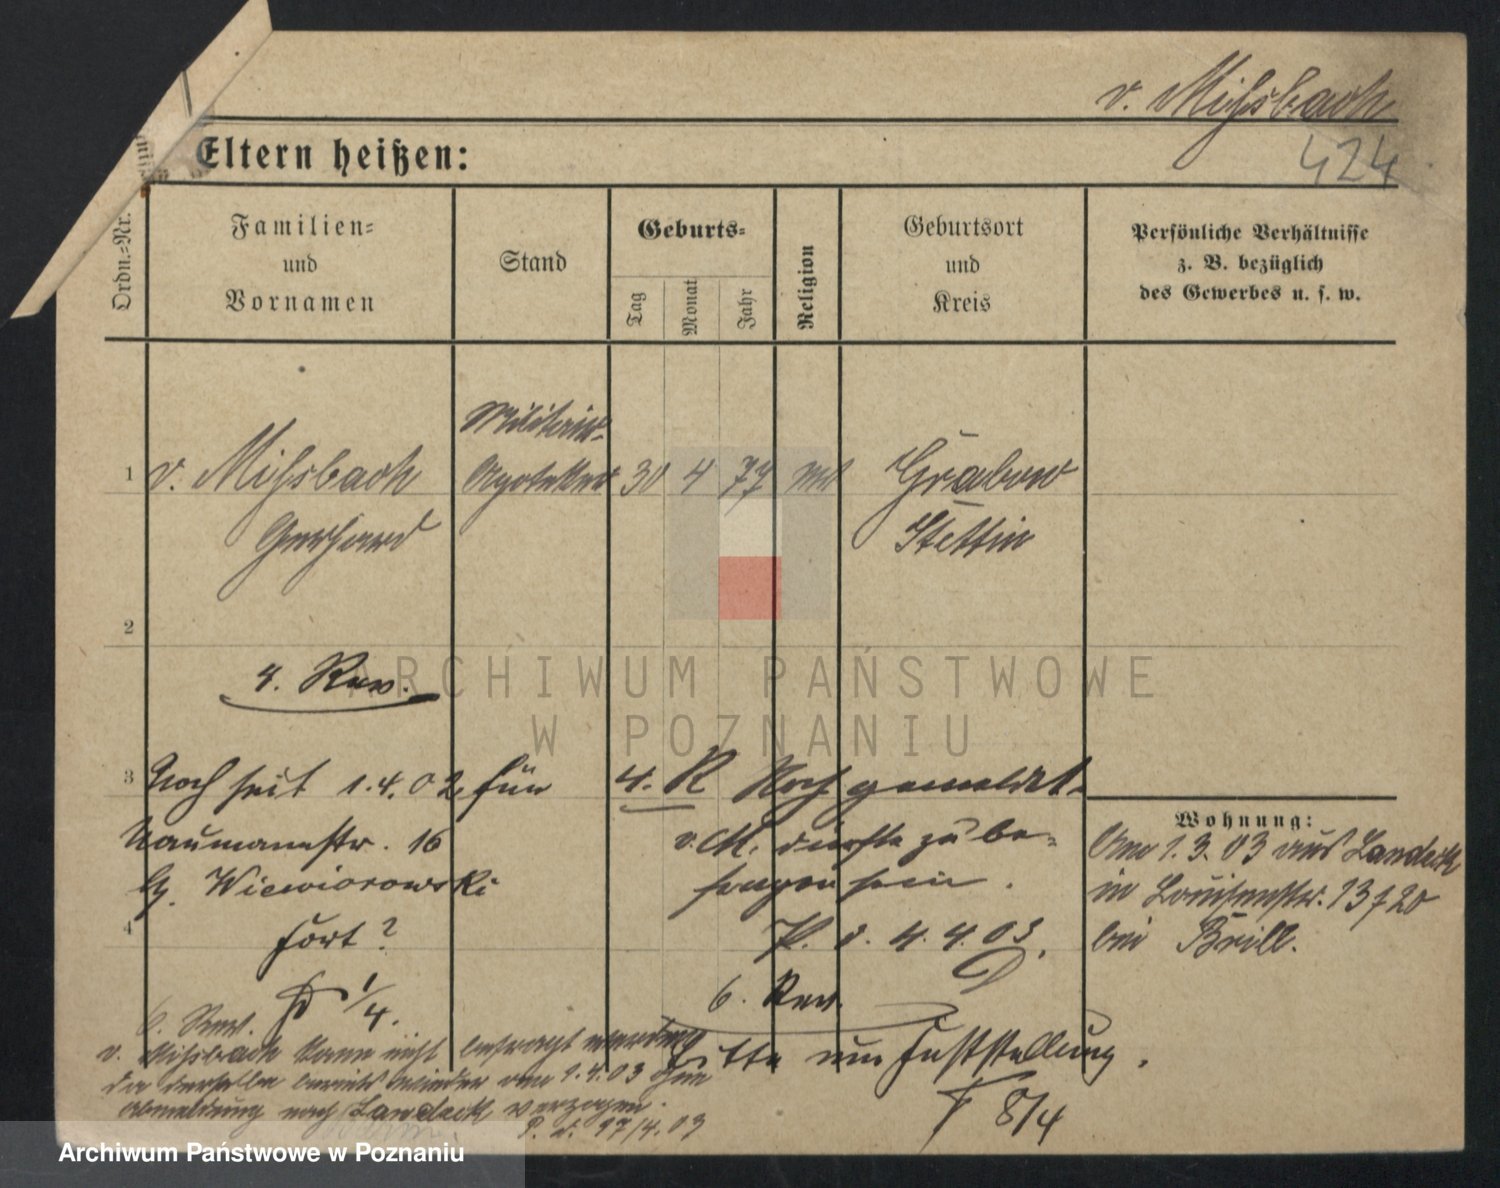 v. Mihsbach
424
Eltern heißen:
Ordn.-Nr.
Familien-
und
Vornamen
Stand
Geburts-
Tag
Monat
Jahr
Religion
Geburtsort
und
Kreis
Persönliche Verhältnisse
z. B. bezüglich
des Gewerbes u. s. w.
1
v. Mihsbach
Gerhard
Militär-
Apotheker
30 4 77
Grabow
Stettin
2
4. Rev.
3
Noch seit 1.4.02 für
Naumannstr. 16
bz. Wiewiorowski
fort?
1/4.
4
4. R Noch gemeldet.
v. M. dürfte zu be-
fragen sein.
P. d. 4.4.03.
6. Rev.
Bitte um Feststellung.
8/4
Wohnung:
Am 1.3.03 aus Landeck
in Louisenstr. 13/20
bei Brill.
6. Rev.
v. Mihsbach kann nicht befragt werden
da derselbe bereits wieder am 1.4.03 ohne
Abmeldung nach Landeck verzogen.
P. d. 17/4.03
ARCHIWUM PAŃSTWOWE
W POZNANIU
Archiwum Państwowe w Poznaniu